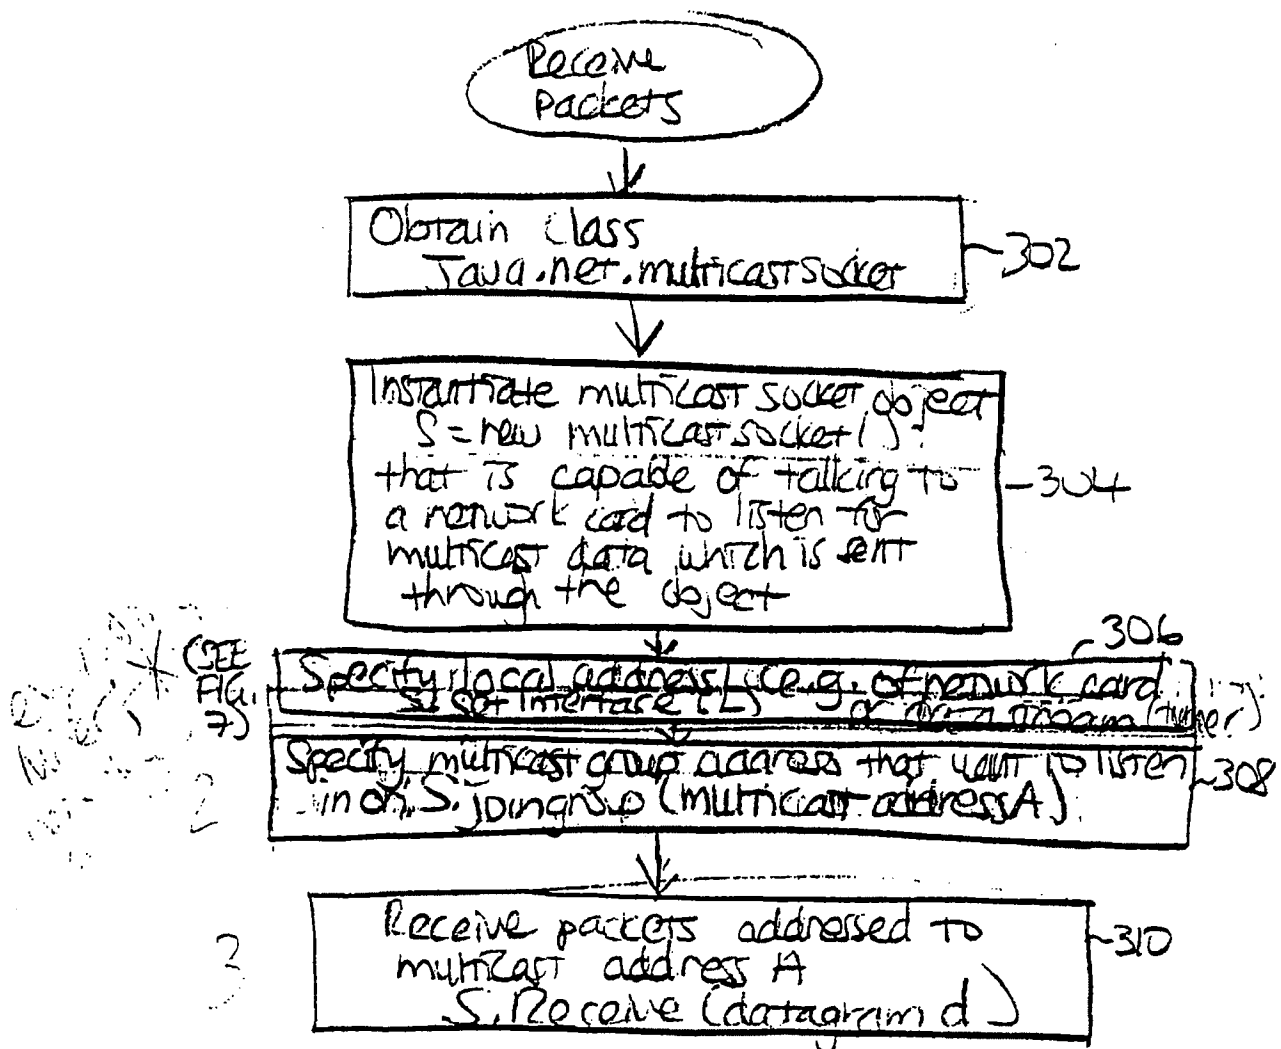 Receive
packets
Obtain Class
Java.net.multicastsocket
302
Instantiate multicast socket object
S = new multicastsocket( );
that is capable of talking to
a network card to listen for
multicast data which is sent
through the object
304
306
(SEE
FIG.
7)
Specify local address L (e.g. of network card
S. Set Interface (L) or
Specify multicast group address that want to listen
in on. S. joingroup (multicast address A)
308
2
Receive packets addressed to
multicast address A
S. Receive (datagram d)
310
3